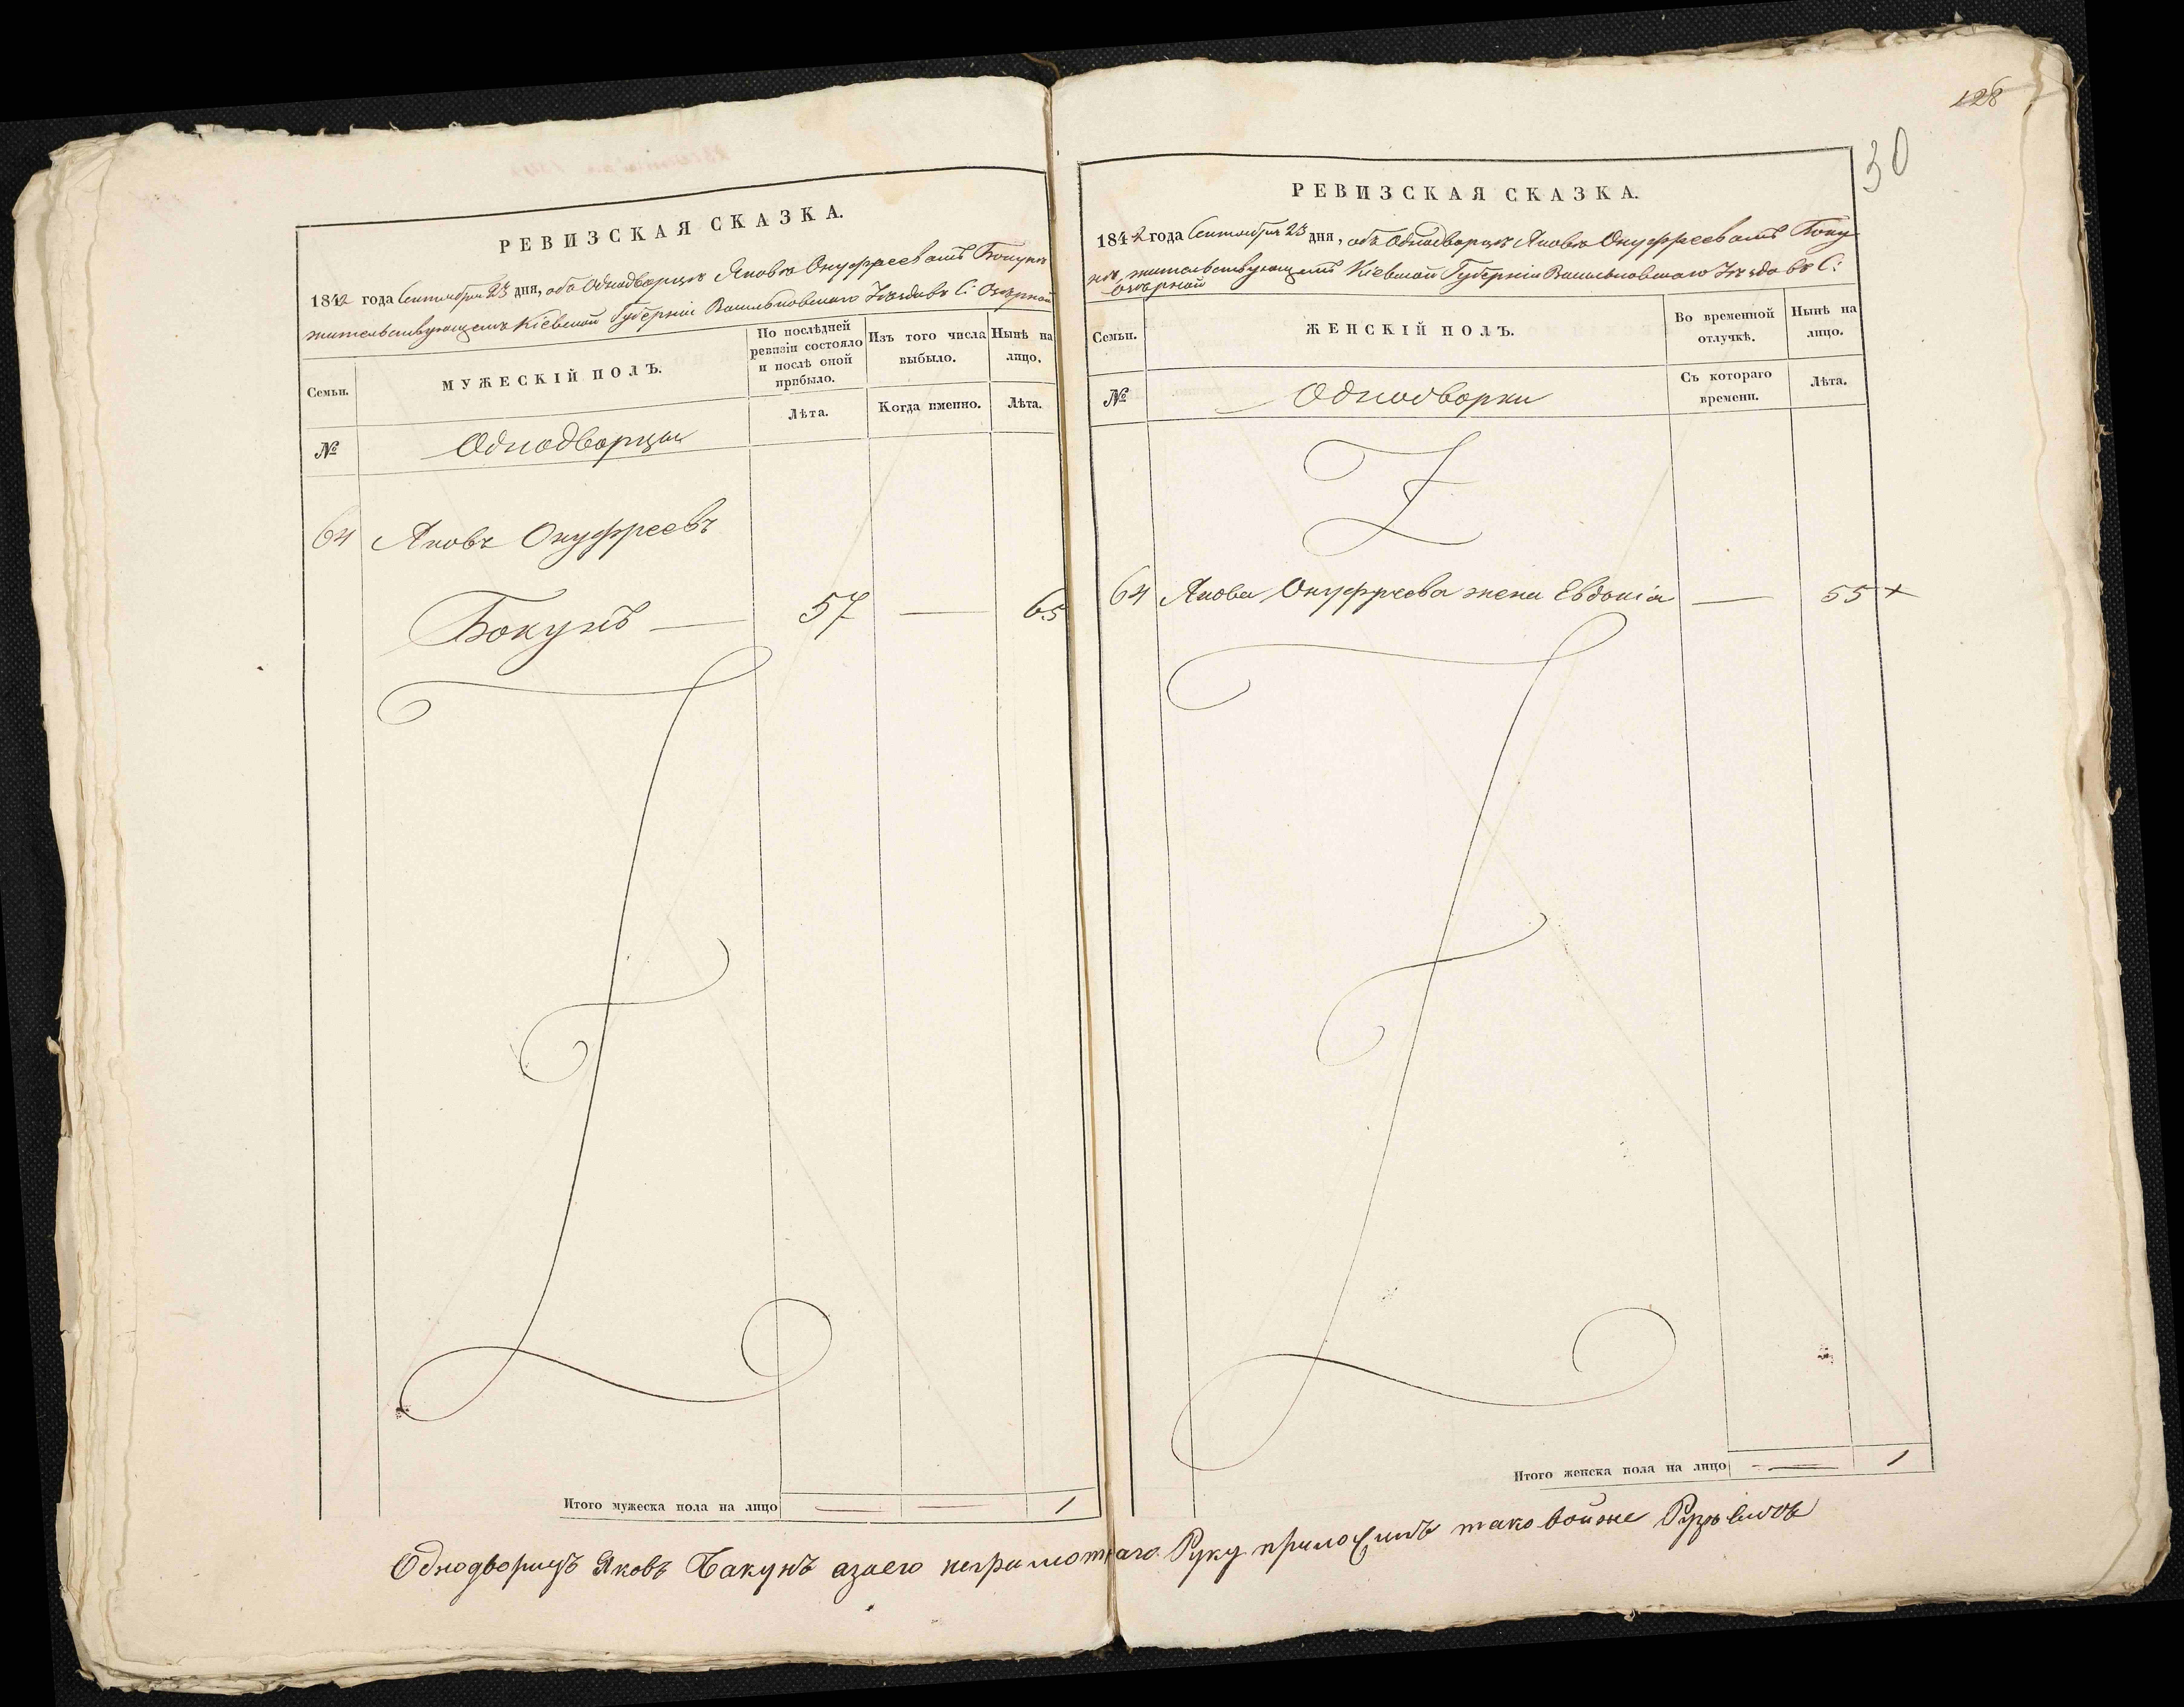 РЕВИЗСКАЯ СКАЗКА.
1842 года Сентября 23 дня, объ Однодворцѣ Яковѣ Онуфреевомъ Бокунѣ
жительствующемъ Кіевской Губерніи Васильковскаго Уѣзда въ С: Озѣрной
Семьи.
МУЖЕСКІЙ ПОЛЪ.
По послѣдней ревизіи состояло и послѣ оной прибыло.
Изъ того числа выбыло.
Нынѣ на лицо.
№
Однодворцы
Лѣта.
Когда именно.
Лѣта.
64 Яковъ Онуфреевъ
Бокунъ — 57 — 65
Итого мужеска пола на лицо — — 1
128
30
РЕВИЗСКАЯ СКАЗКА.
1842 года Сентября 23 дня, объ Однодворцѣ Яковѣ Онуфреевомъ Боку-
нѣ, жительствующемъ Кіевской Губерніи Васильковскаго Уѣзда въ С:
Озѣрной
Семьи.
ЖЕНСКІЙ ПОЛЪ.
Во временной отлучкѣ.
Нынѣ на лицо.
№
Однодворки
Съ котораго времени.
Лѣта.
64 Якова Онуфреева жена Евдокія — 55 +
Итого женска пола на лицо — 1
Однодворецъ Яковъ Бакунъ азаего неграмотнаго Руку приложилъ таковойже